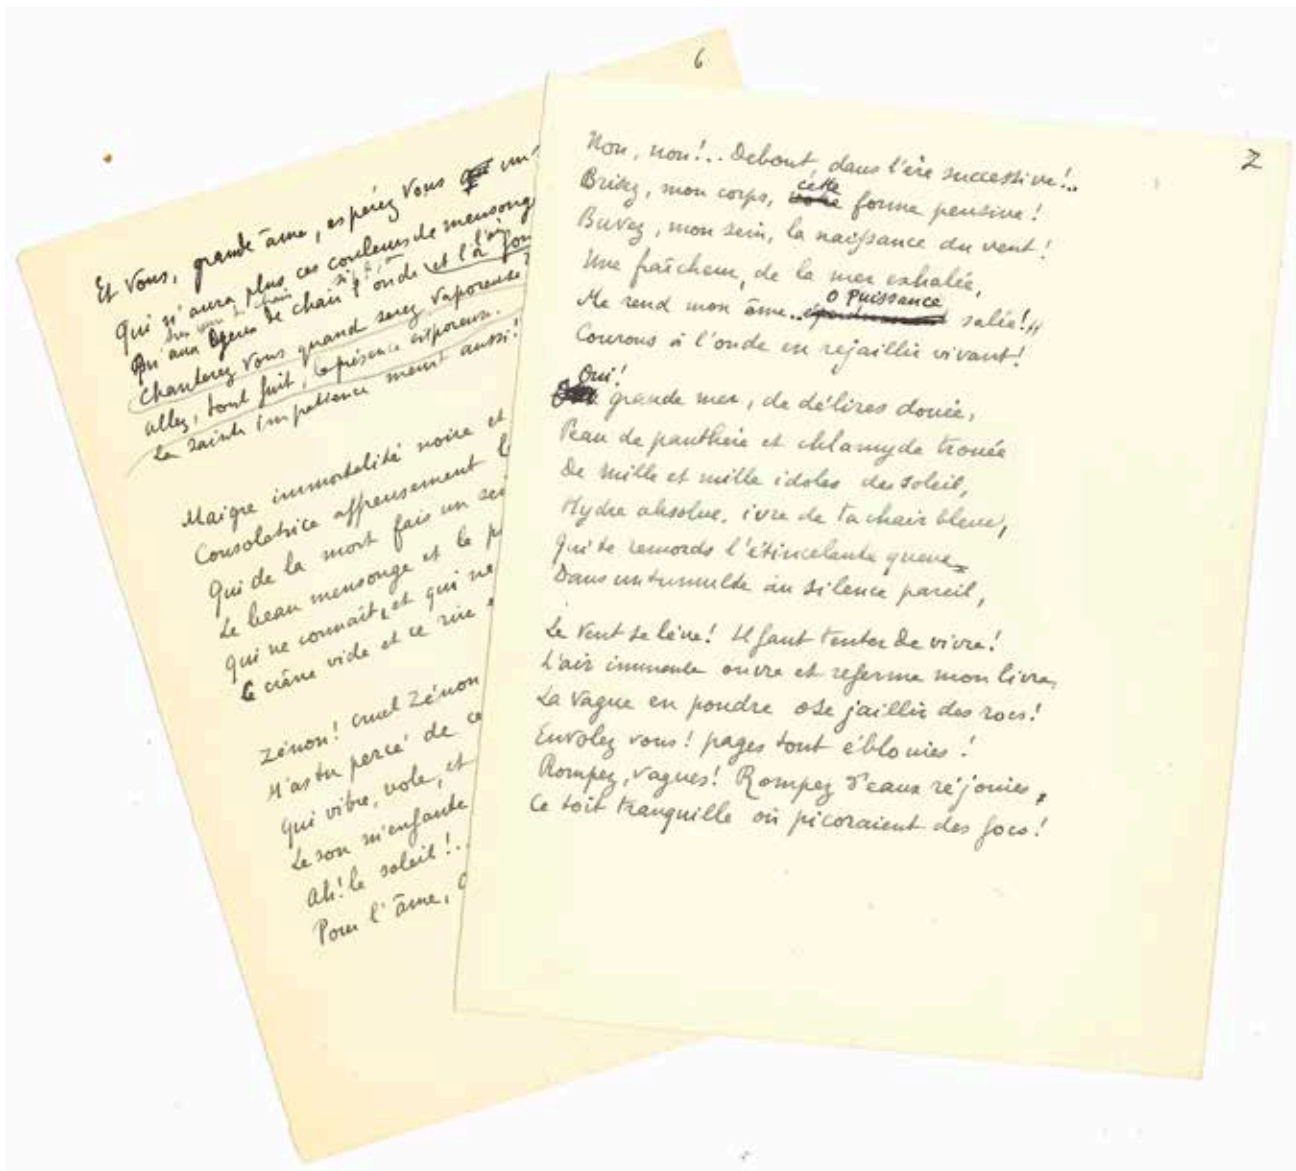 6
Et Vous, grande âme, espérez Vous un
Qui n'aura plus ces couleurs de mensonge
Qu'aux yeux de chair l'onde et l'
Chanterez Vous quand serez vaporeuse?
allez, tout fuit, la présence est poreuse.
La sainte impatience meurt aussi!
Maigre immortalité noire et
Consolatrice affreusement l
Qui de la mort fais un sei
Le beau mensonge et la p
Qui ne connaît, et qui ne
Ce crâne vide et ce rire
Zénon! Cruel Zénon
M'as tu percé de ce
Qui vibre, vole, et
Le son m'enfante
Ah! le soleil!..
Pour l'âme,
7
Non, non!.. Debout, dans l'ère successive!..
cette
Brisez, mon corps, votre forme pensive!
Buvez, mon sein, la naissance du vent!
Une fraîcheur, de la mer exhalée,
O Puissance
Me rend mon âme.. salée!..
Courons à l'onde en rejaillir vivant!
Oui!
grande mer, de délires douée,
Peau de panthère et chlamyde trouée
De mille et mille idoles du soleil,
Hydre absolue, ivre de ta chair bleue,
Qui te remords l'étincelante queue
Dans un tumulte au silence pareil,
Le Vent se lève! Il faut tenter de vivre!
L'air immense ouvre et referme mon livre,
La Vague en poudre ose jaillir des rocs!
Envolez vous! pages tout éblouies!
Rompez, vagues! Rompez d'eaux réjouies,
Ce toit tranquille où picoraient des focs!